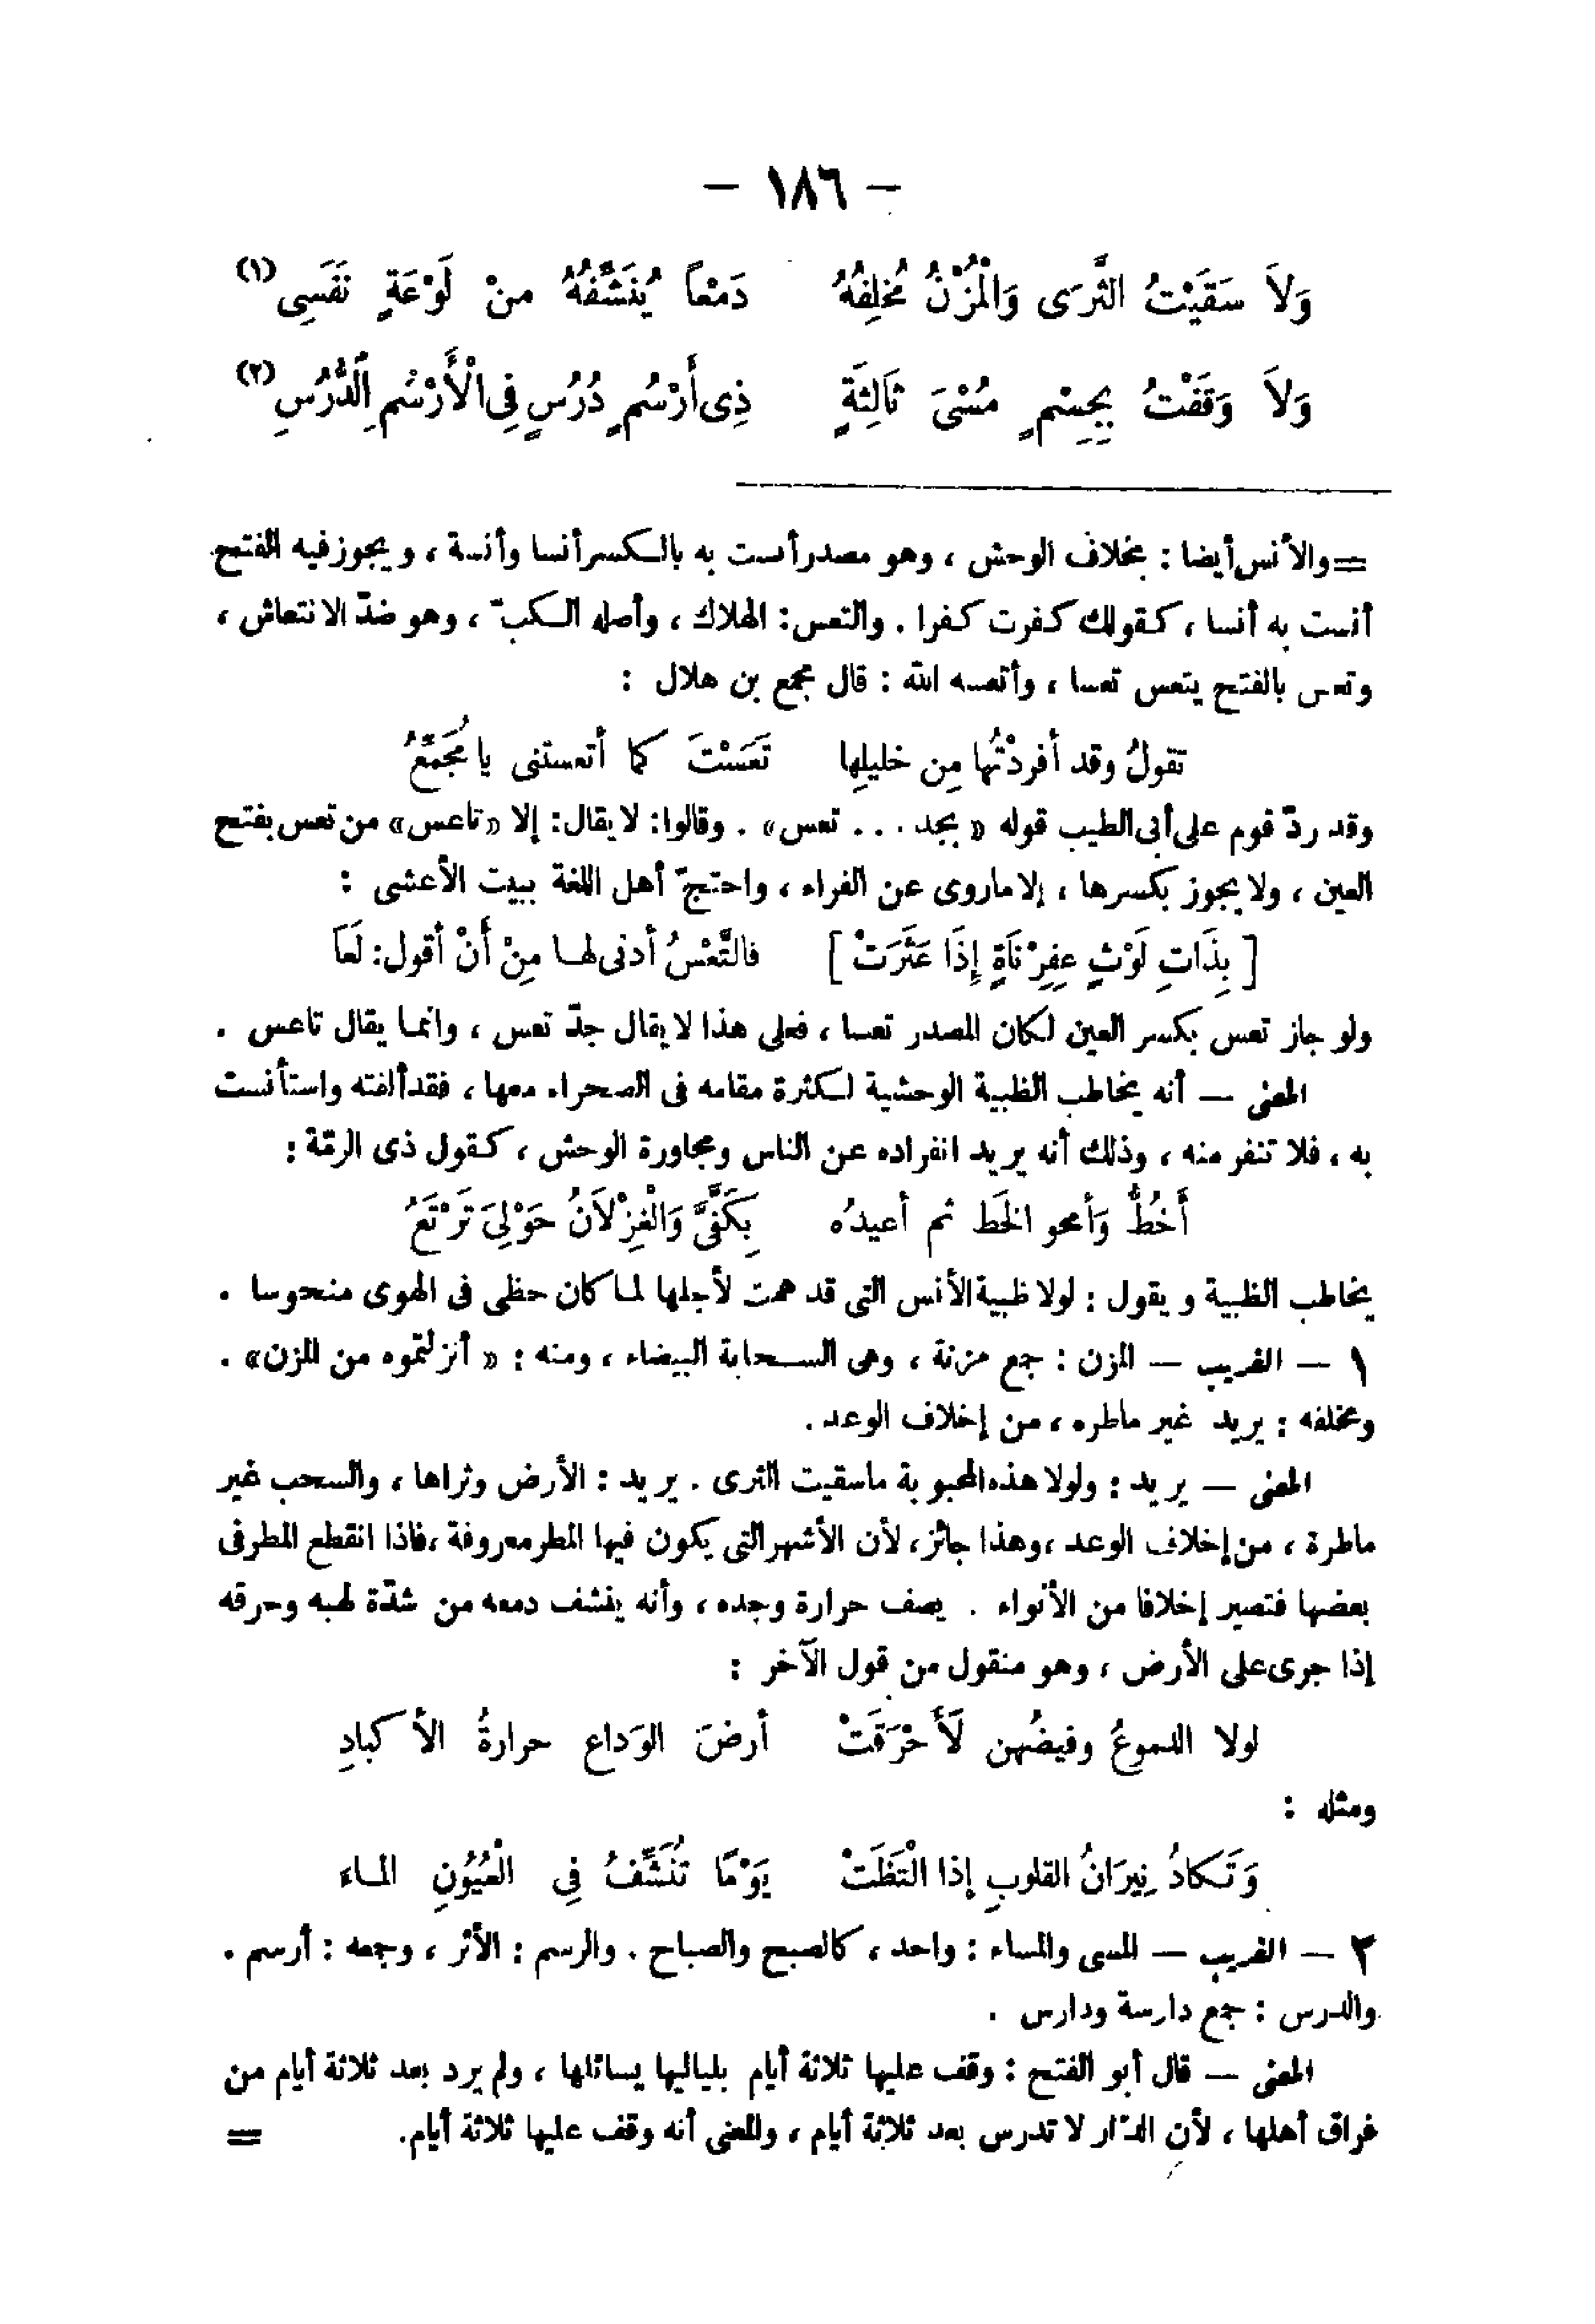 — ١٨٦ —
وَلاَ سَقَيْتُ الثَّرَى وَالْمُزْنُ مُخْلِفُهُ دَمْعاً يُنَشِّفُهُ منْ لَوْعَةٍ نَفَسِى (١)
وَلاَ وَقَفْتُ بِجِسْمٍ مُسْىَ ثَالِثَةٍ ذِى أَرْسُمٍ دُرُسٍ فِى الْأَرْسُمِ الدُّرُسِ (٢)
= والأنس أيضا : بخلاف الوحش ، وهو مصدر أنست به بالكسر أنسا وأنسة ، ويجوز فيه الفتح
أنست به أنسا ، كقولك كفرت كفرا . والتعس : الهلاك ، وأصله الكبّ ، وهو ضدّ الانتعاش ،
وتعس بالفتح يتعس تعسا ، وأتعسه الله : قال مجمع بن هلال :
تقولُ وقد أفردْتُها مِن خليلِها تَعَسْتَ كما أتعستنى يا مُجَمِّعُ
وقد ردّ قوم على أبى الطيب قوله « بجد . . . تعس » . وقالوا : لا يقال : إلا « تاعس » من تعس بفتح
العين ، ولا يجوز بكسرها ، إلا ماروى عن الفراء ، واحتجّ أهل اللغة ببيت الأعشى :
[ بِذَاتِ لَوْثٍ عِفِرْنَاةٍ إِذَا عَثَرَتْ ] فالتَّعْسُ أدنى لها مِنْ أَنْ أقول : لَعَا
ولو جاز تعس بكسر العين لكان المصدر تعسا ، فعلى هذا لا يقال جدّ تعس ، وانما يقال تاعس .
المعنى — أنه يخاطب الظبية الوحشية لكثرة مقامه فى الصحراء معها ، فقد ألفته واستأنست
به ، فلا تنفر منه ، وذلك أنه يريد انفراده عن الناس ومجاورة الوحش ، كقول ذى الرمّة :
أَخُطُّ وَأمحو الخَط ثم أعيدُه بِكَفَّىَّ وَالْغِزْلاَنُ حَوْلِىَ تَرْتَعُ
يخاطب الظبية ويقول : لولا ظبية الأنس التى قد همت لأجلها لما كان حظى فى الهوى منحوسا .
١ — الغريب — المزن : جمع مزنة ، وهى السحابة البيضاء ، ومنه : « أنزلتموه من المزن » .
ومخلفه : يريد غير ماطره ، من إخلاف الوعد .
المعنى — يريد : ولولا هذه المحبوبة ماسقيت الثرى . يريد : الأرض وثراها ، والسحب غير
ماطرة ، من إخلاف الوعد ، وهذا جائز ، لأن الأشهر التى يكون فيها المطر معروفة ، فاذا انقطع المطر فى
بعضها فتصير إخلافا من الأنواء . يصف حرارة وجده ، وأنه ينشف دمعه من شدّة لهبه وحرقه
إذا جرى على الأرض ، وهو منقول من قول الآخر :
لولا الدموعُ وفيضُهن لَأَحْرَقَتْ أرضَ الوَداع حرارةُ الأكبادِ
ومثله :
وَتَكادُ نِيرَانُ القلوبِ إذا الْتَظَتْ يَوْمًا تُنَشِّفُ فِى الْعُيُونِ الماء
٢ — الغريب — المسى والمساء : واحد ، كالصبح والصباح . والرسم : الأثر ، وجمعه : أرسم .
والدرس : جمع دارسة ودارس .
المعنى — قال أبو الفتح : وقف عليها ثلاثة أيام بلياليها يسائلها ، ولم يرد بعد ثلاثة أيام من
فراق أهلها ، لأن الدّار لا تدرس بعد ثلاثة أيام ، والمعنى أنه وقف عليها ثلاثة أيام. =